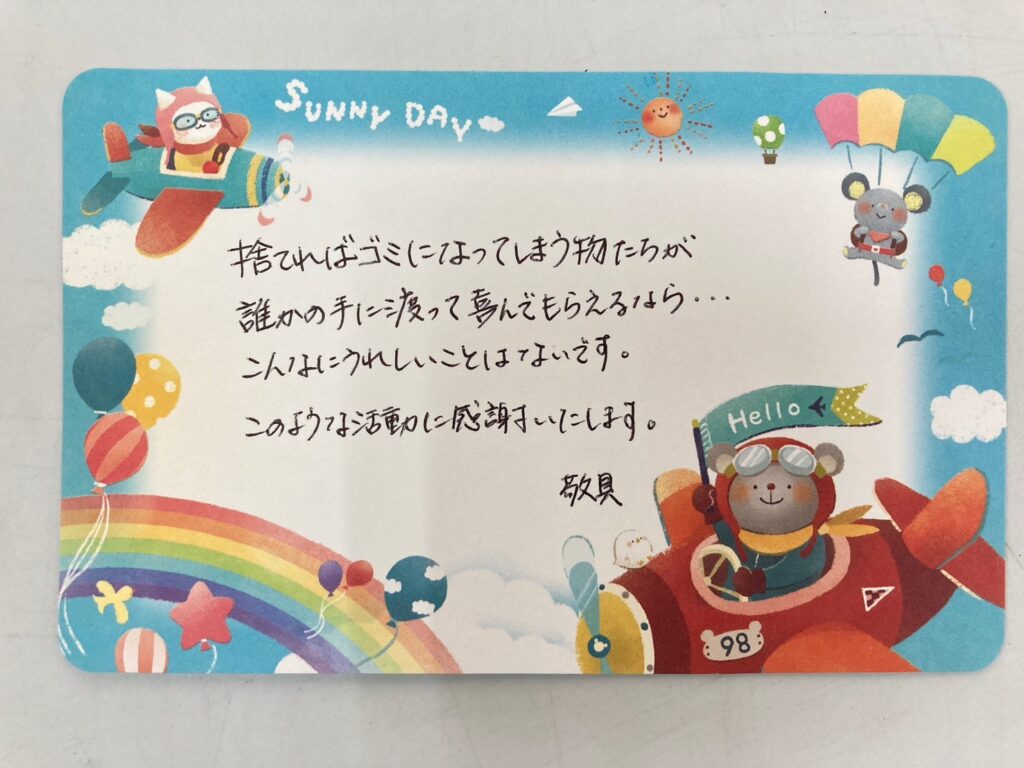 SUNNY DAY
捨てればゴミになってしまう物たちが
誰かの手に渡って喜んでもらえるなら・・・
こんなにうれしいことはないです。
このような活動に感謝いたします。
敬具
Hello
98